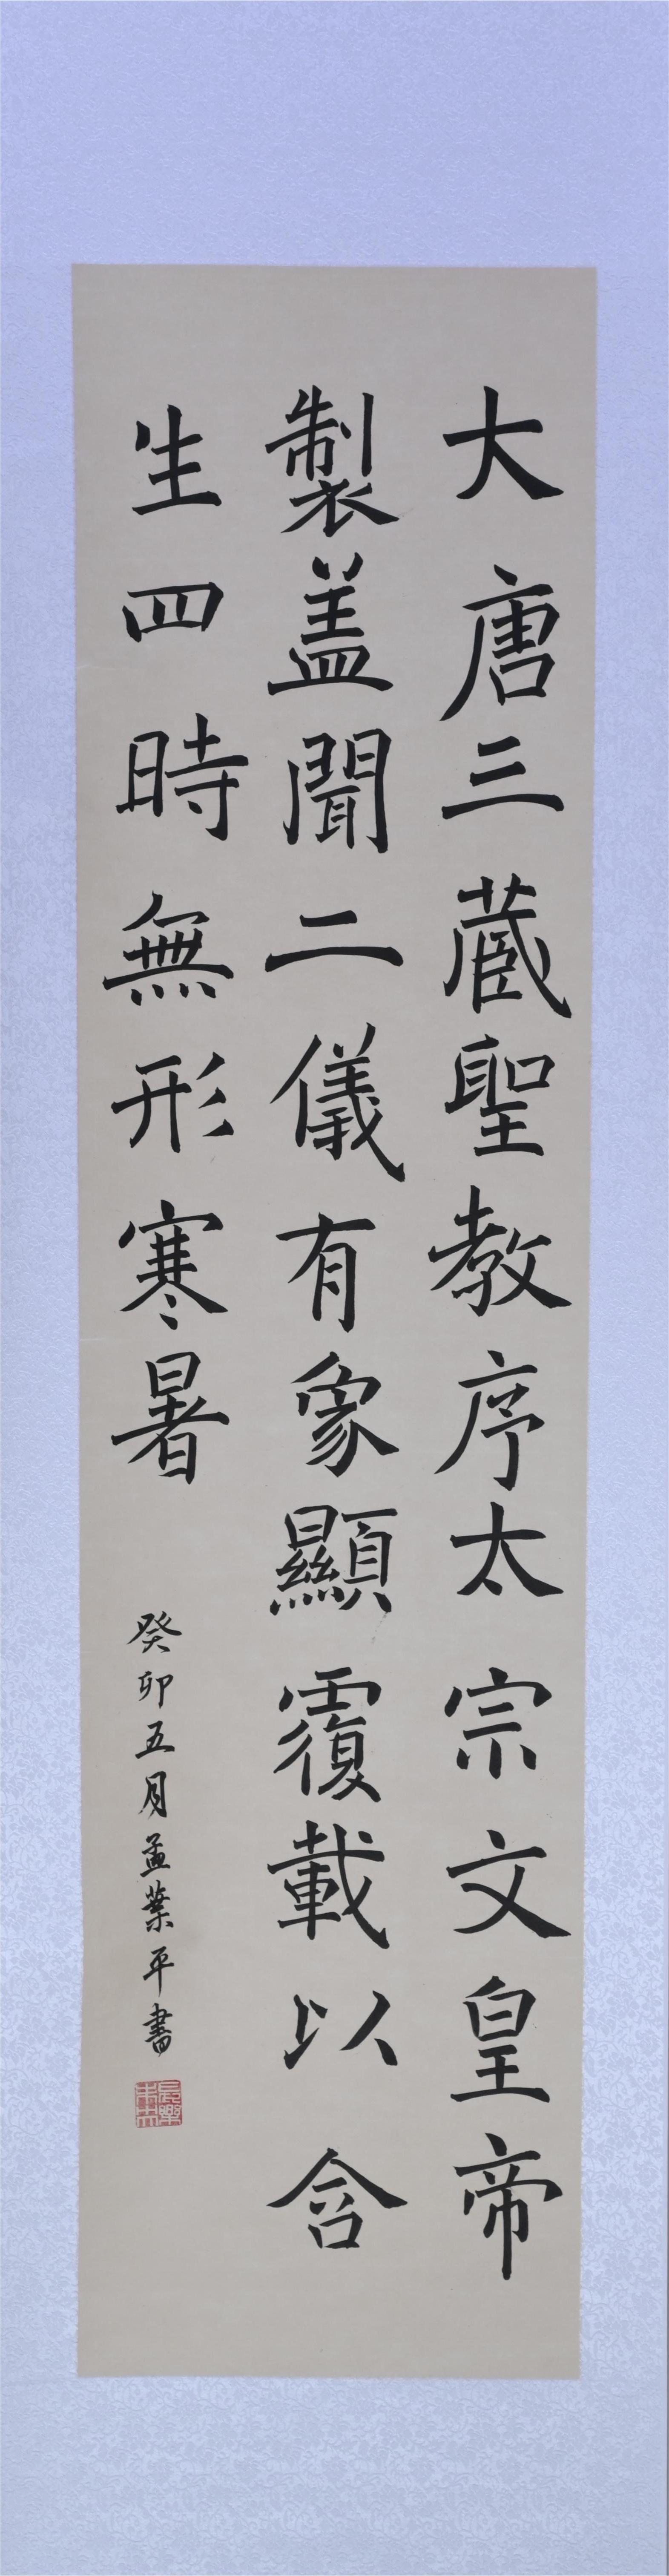 大唐三蔵聖教序太宗文皇帝
製盖聞二儀有象顯覆載以含
生四時無形寒暑
癸卯五月孟葉平書